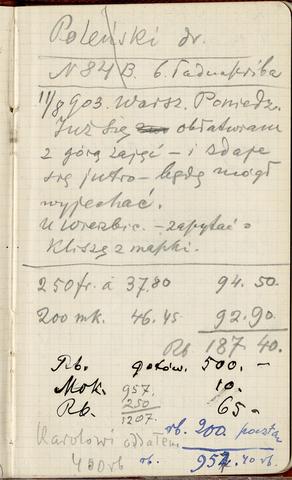 Poleński dr.
N 84 B. 6.
11/8 903. Warsz. Poniedz.
Już się obłatwiam
z górą zajęć – i zdaje
się jutro – będę mógł
wyjechać.
U Wierzbic. – zapytać o
kliszę z mapki.
250 fr. à 37.80 94.50.
200 mk. 46.45 92.90.
Rb 187 40.
Rb. gotów. 500. –
Mok. 957. 10. –
Rb. 250 65 –
1207.
rb. 200
Karolowi oddałem
400 rb rb. 952. 40 rb